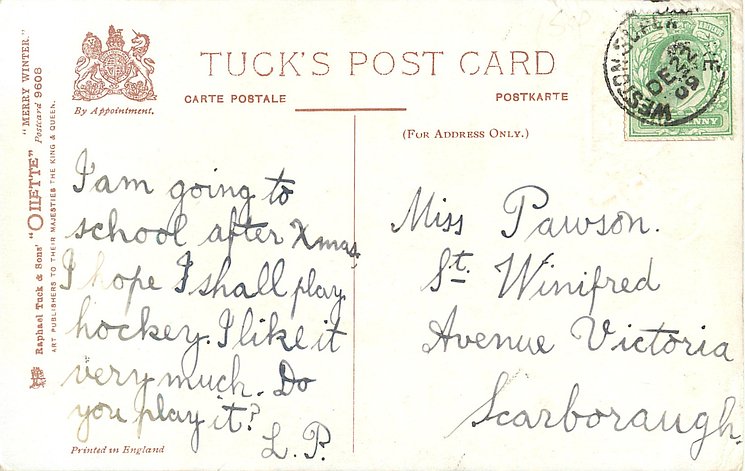 TUCK'S POST CARD
CARTE POSTALE
POSTKARTE
By Appointment.
(FOR ADDRESS ONLY.)
"MERRY WINTER."
Postcard 9608
Raphael Tuck & Sons' "OILETTE"
ART PUBLISHERS TO THEIR MAJESTIES THE KING & QUEEN.
WESTON-SUPER-
DE 22
09
I'am going to
school after Xmas,
I hope I shall play
hockey. I like it
very much. Do
you play it?
L. P.
Miss Pawson.
St. Winifred
Avenue Victoria
Scarboraugh.
Printed in England